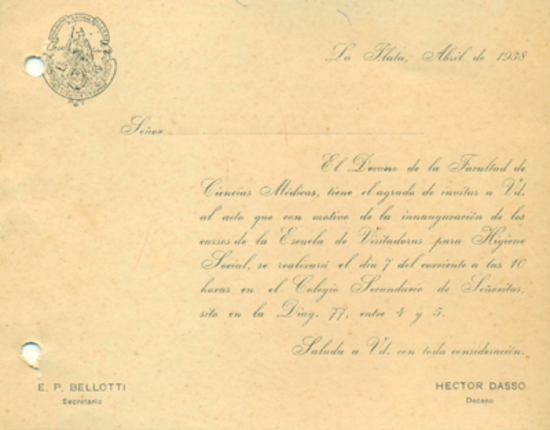 La Plata, Abril de 1938
Señor
El Decano de la Facultad de
Ciencias Médicas, tiene el agrado de invitar a Vd.
al acto que con motivo de la inauguración de los
cursos de la Escuela de Visitadoras para Higiene
Social, se realizará el día 7 del corriente a las 10
horas en el Colegio Secundario de Señoritas,
sito en la Diag. 77, entre 4 y 5.
Saluda a Vd. con toda consideración.
E. P. BELLOTTI
Secretario
HECTOR DASSO
Decano